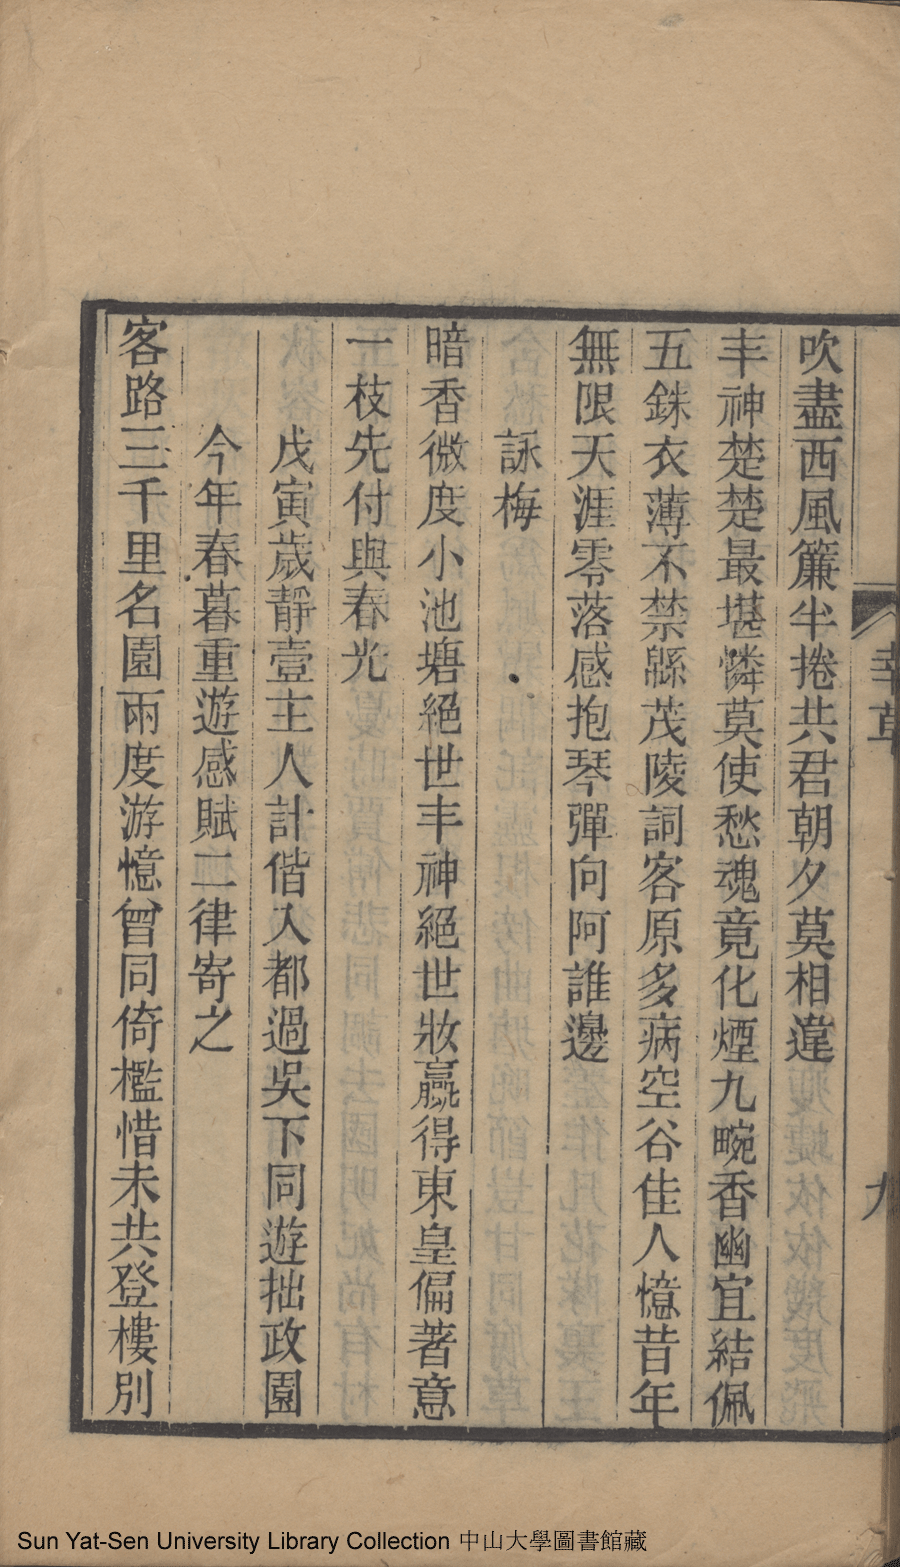 吹盡西風簾半捲共君朝夕莫相違
丰神楚楚最堪憐莫使愁魂竟化煙九畹香幽宜結佩
五銖衣薄不禁緜茂陵詞客原多病空谷佳人憶昔年
無限天涯零落感抱琴彈向阿誰邊
詠梅
暗香微度小池塘絕世丰神絕世妝贏得東皇偏著意
一枝先付與春光
戊寅歲靜壹主人計偕入都過吳下同遊拙政園
今年春暮重遊感賦二律寄之
客路三千里名園兩度游憶曾同倚檻惜未共登樓別
Sun Yat-Sen University Library Collection 中山大學圖書館藏